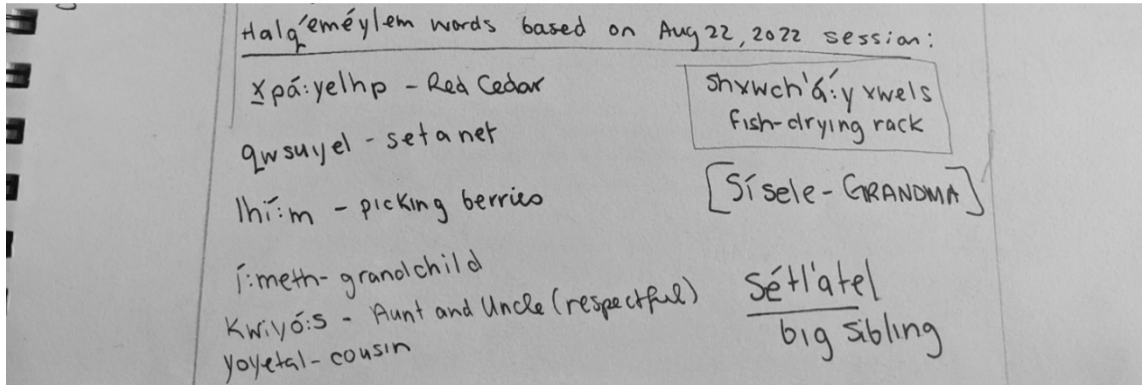 Halq'eméylem words based on Aug 22, 2022 session:
x̱pá:yelhp - Red Cedar
qwsuyel - set a net
lhí:m - picking berries
í:meth - grandchild
Kwiyó:s - Aunt and Uncle (respectful)
yoyetal - cousin
shxwch'á:y xwels
fish-drying rack
[Sísele - GRANDMA]
Sétl'atel
big sibling